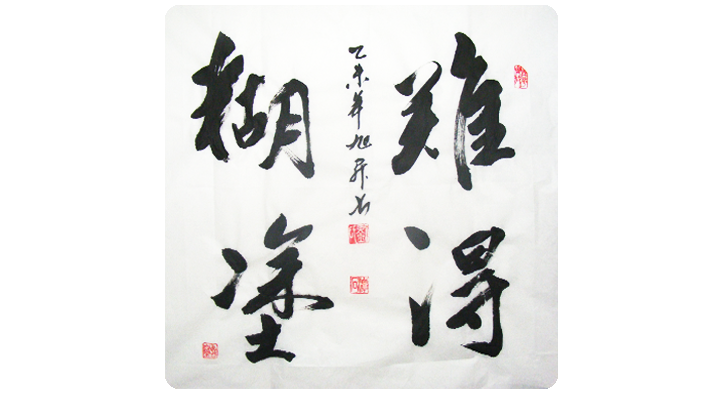 難得
糊塗
乙未年旭昇书